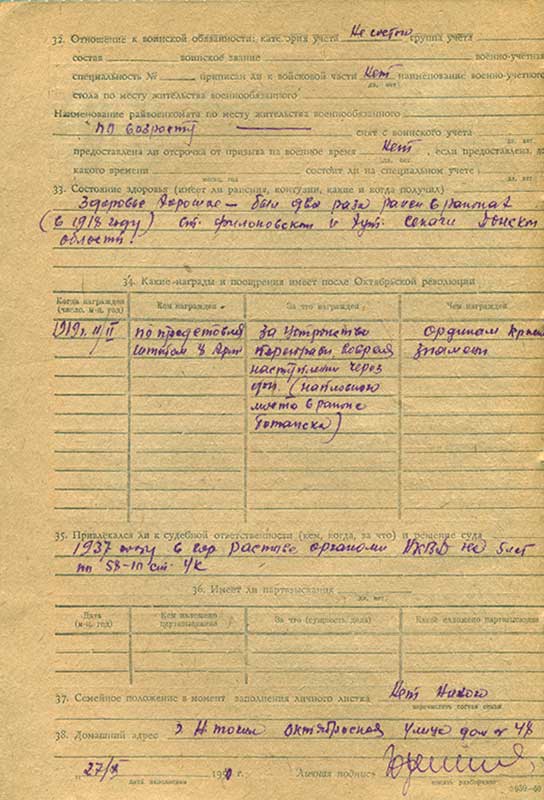 32. Отношение к воинской обязанности: категория учета Не состою группа учета
состав воинское звание военно-учетная
специальность № приписан ли к войсковой части Нет наименование военно-учетного
да, нет
стола по месту жительства военнообязанного
Наименование райвоенкомата по месту жительства военнообязанного
по возрасту снят с воинского учета
да, нет
предоставлена ли отсрочка от призыва на военное время Нет, если предоставлена, до
да, нет
какого времени состоит ли на специальном учете
месяц, год да, нет
33. Состояние здоровья (имеет ли ранения, контузии, какие и когда получил)
Здоровье Хорошае — был два раза ранен в районах
(в 1918 году) ст. Филоновской и хут. Сеначи Донской
области.
34. Какие награды и поощрения имеет после Октябрьской революции
Когда награжден (число, м-ц, год) Кем награжден За что награжден Чем награжден
1919 г. 11/II по предствлен За Устройство Ординам Красн
штабом 9 Арм переправы вовремя Знамени
наступлении через
Дон. (наплавного
моста в районе
)
35. Привлекался ли к судебной ответственности (кем, когда, за что) и решение суда
1937 году в гор Ростове органами НКВД на 5 лет
по 58-10 ст. УК
36. Имеет ли партвзыскания
да, нет
Дата (м-ц, год) Кем наложено партвзыскание За что (сущность дела) Какое наложено партвзыскание
37. Семейное положение в момент заполнения личного листка Нет Никого
перечислить состав семьи
38. Домашний адрес Октябрьская улица дом № 48
„27/X 195 г. Личная подпись
дата заполнения писать разборчиво